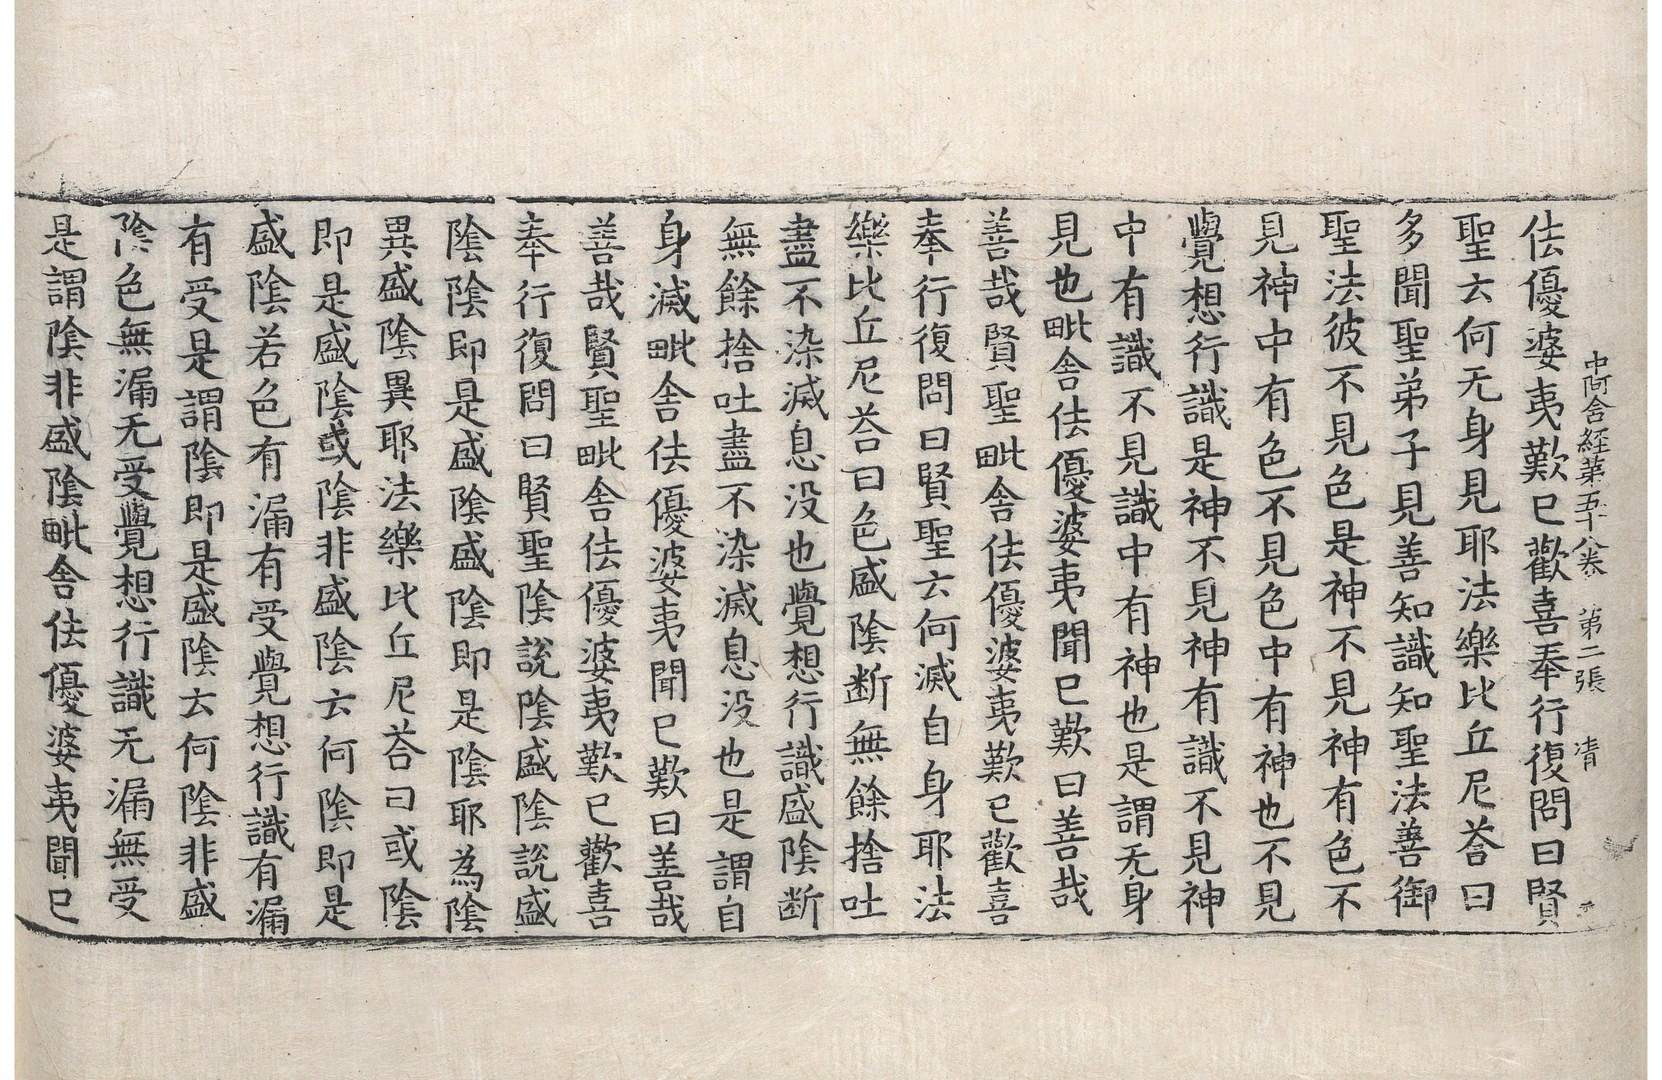 中阿含經第五十八卷　第二張　清
佉優婆夷歎已歡喜奉行復問曰賢
聖云何无身見耶法樂比丘尼荅曰
多聞聖弟子見善知識知聖法善御
聖法彼不見色是神不見神有色不
見神中有色不見色中有神也不見
覺想行識是神不見神有識不見神
中有識不見識中有神也是謂无身
見也毗舍佉優婆夷聞已歎曰善哉
善哉賢聖毗舍佉優婆夷歎已歡喜
奉行復問曰賢聖云何滅自身耶法
樂比丘尼荅曰色盛陰斷無餘捨吐
盡不染滅息没也覺想行識盛陰斷
無餘捨吐盡不染滅息没也是謂自
身滅毗舍佉優婆夷聞已歎曰善哉
善哉賢聖毗舍佉優婆夷歎已歡喜
奉行復問曰賢聖陰說陰盛陰說盛
陰陰即是盛陰盛陰即是陰耶為陰
異盛陰異耶法樂比丘尼荅曰或陰
即是盛陰或陰非盛陰云何陰即是
盛陰若色有漏有受覺想行識有漏
有受是謂陰即是盛陰云何陰非盛
陰色無漏无受覺想行識无漏無受
是謂陰非盛陰毗舍佉優婆夷聞已